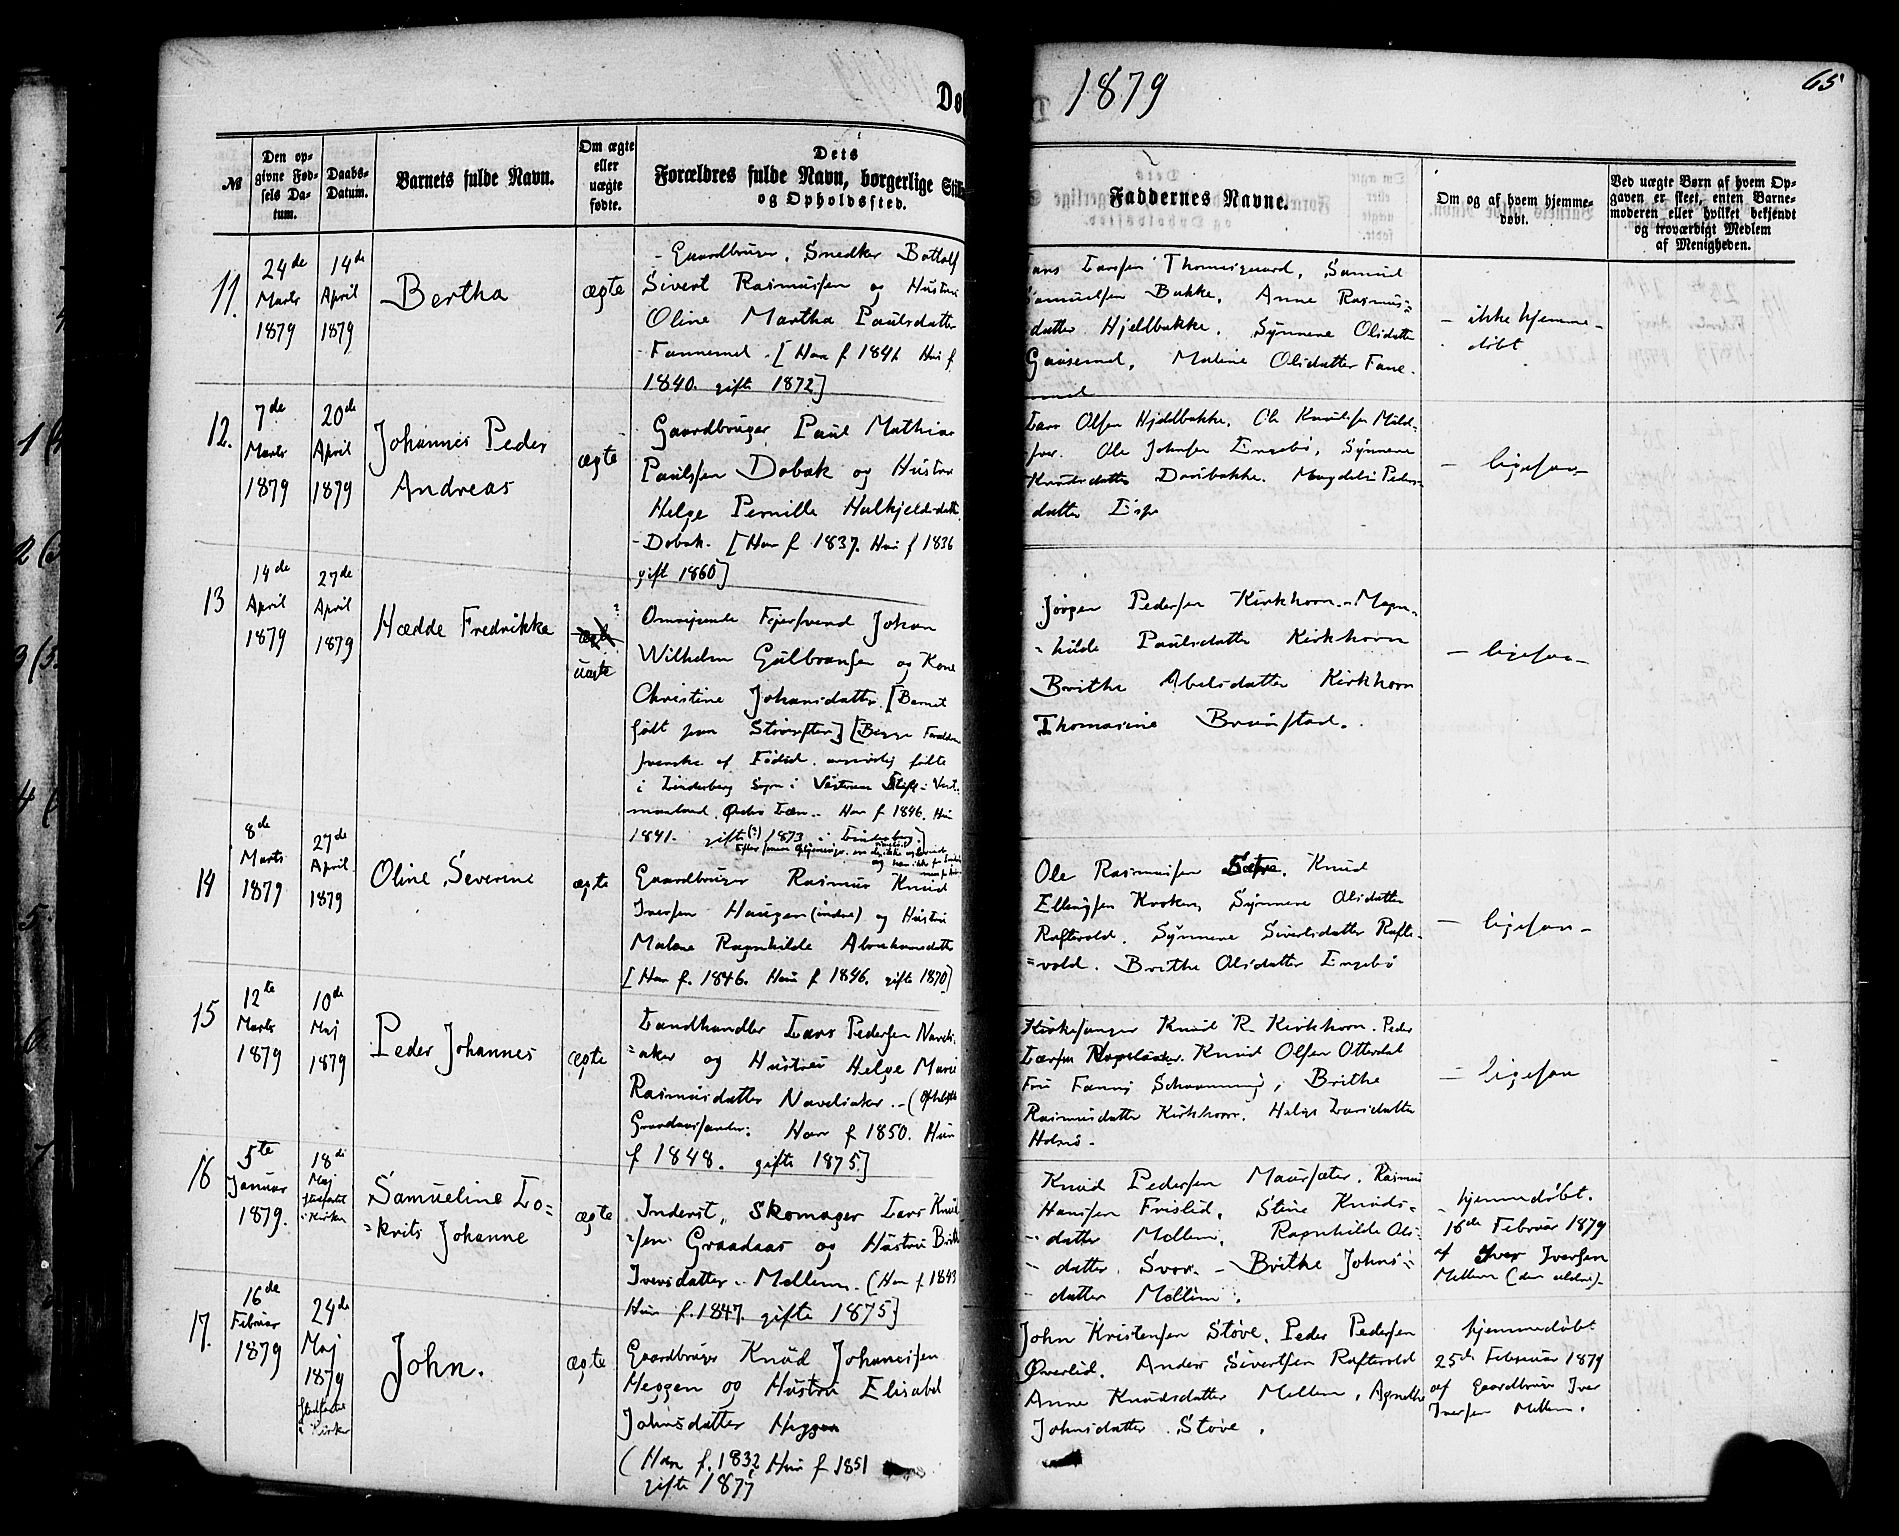 1879
65
Dø
№
Den opgivne Fødsels Datum.
Daabs-Datum.
Barnets fulde Navn.
Om ægte eller uægte fødte.
Dets Forældres fulde Navn, borgerlige Stil
og Opholdssted.
Faddernes Navne.
Om og af hvem hjemmedøbt.
Ved uægte Børn af hvem Opgaven er skeet, enten Barnemoderen eller hvilket bekjendt og troværdigt Medlem af Menigheden.
11.
24de
Marts
1879
14de
April
1879
Bertha
ægte
Gaardbruger, Snedker Bottolf
Sivert Rasmussen og Hustru
Oline Martha Paulsdatter
Fannemel. [Han f 1841. Hun f.
1840. gifte 1872]
Lars Larssen Thomasgaard, Samuel
Samuelsen Bakke, Anne Rasmus=
datter Hjellbakke. Synneve Olsdatter
Gausemel, Maline Olsdatter Fane-
mel
- ikke hjemme-
døbt
12.
7de
Marts
1879
20de
April
1879
Johannes Peder
Andreas
ægte
Gaardbruger Paul Mathias
Paulssen Dobak og Hustru
Helge Pernille Halkjeldsdatt
Dobak. [Han f 1837. Hun f 1836
gift 1860]
Lars Olsen Hjellbakke. Ole Knudsen
Ole Johnsen Engebø, Synneve
Knudsdatter Magdeli Peders-
datter Espe
- ligesaa -
13
14de
April
1879
27de
April
1879
Hædde Fredrikke
ægte ?
uægte
Omreisende Feiersvend Johan
Wilhelm Gulbransen og Kone
Christine Johansdatter. [Barnet
født paa [Begge Forældre
svenske af Fødsel
i Linderberg Sogn i Vesteraas Stift - Vest-
manland, Ørebro Læn. - Han f 1846. Hun
1841. gifte (?) 1873 i Linderberg]
Jørgen Pedersen Kirkhorn. - Magn-
hilde Paulsdatter Kirkhorn
Brithe Abelsdatter Kirkhorn
Thomasine Brunstad.
- ligesaa -
14
8de
Marts
1879
27de
April
1879
Oline Severine
ægte
Gaardbruger Rasmus Knud
Iversen Haugen (indre) og Hustru
Malene Ragnhilde Abrahamsdatter
[Han f. 1846. Hun f 1846. gifte 1870]
Ole Rasmussen Sætre. Knud
Ellingsen Kroken, Synneve Olsdatter
Raftevold. Synneve Sivertsdatter Rafte-
=vold. Brithe Olsdatter Engebø
- ligesaa -
15
12te
Marts
1879
10de
Maj
1879
Peder Johannes
ægte
Landhandler Lars Pedersen Navels-
=aker og Hustru Helge Marie
Rasmusdatter Navelsaker. - (
Han f 1850. Hun
f 1848. gifte 1875.]
Kirkesanger Knud R. Kirkhorn. Peder
Larsen Knud Olsen Otterdal
Fru Fanny Schaanning, Brithe
Rasmusdatter Kirkhorn. Helge Larsdatter
- ligesaa
16
5te
Januar
1879.
18de
Maj
stadfæstet
i Kirken
Samueline Lo=
=krits Johanne
ægte
Inderst, Skomager Lars Knud
=sen Graadaas og Hustru Brith
Iversdatter - Mellem. (Han f. 1843
Hun f. 1847. gifte 1875]
Knud Pedersen Maursæter. Rasmus
Hanssen Frislid, Stine Knuds-
datter Mellem, Ragnhilde Ols-
datter Svor. - Brithe Johns=
datter Mellem.
hjemmedøbt.
16de Februar 1879
af Iver Iversen
Mellem (den ældre) -
17.
16de
Februar
1879
24de
Maj
1879
stadfæstet
i Kirken
John.
ægte
Gaardbruger Knud Johannesen
Heggen og Hustru Elisabet
Johnsdatter Heggen
(Han f. 1832 Hun f 1851
gifte 1877
John Kristensen Støve, Peder Pedersen
Øverlid. Anders Sivertsen Raftevold
Anne Knudsdatter Mellem, Agnethe
Johnsdatter Støve.
hjemmedøbt
25de Februar 1879
af Gaardbruger Iver
Iversen Mellem.